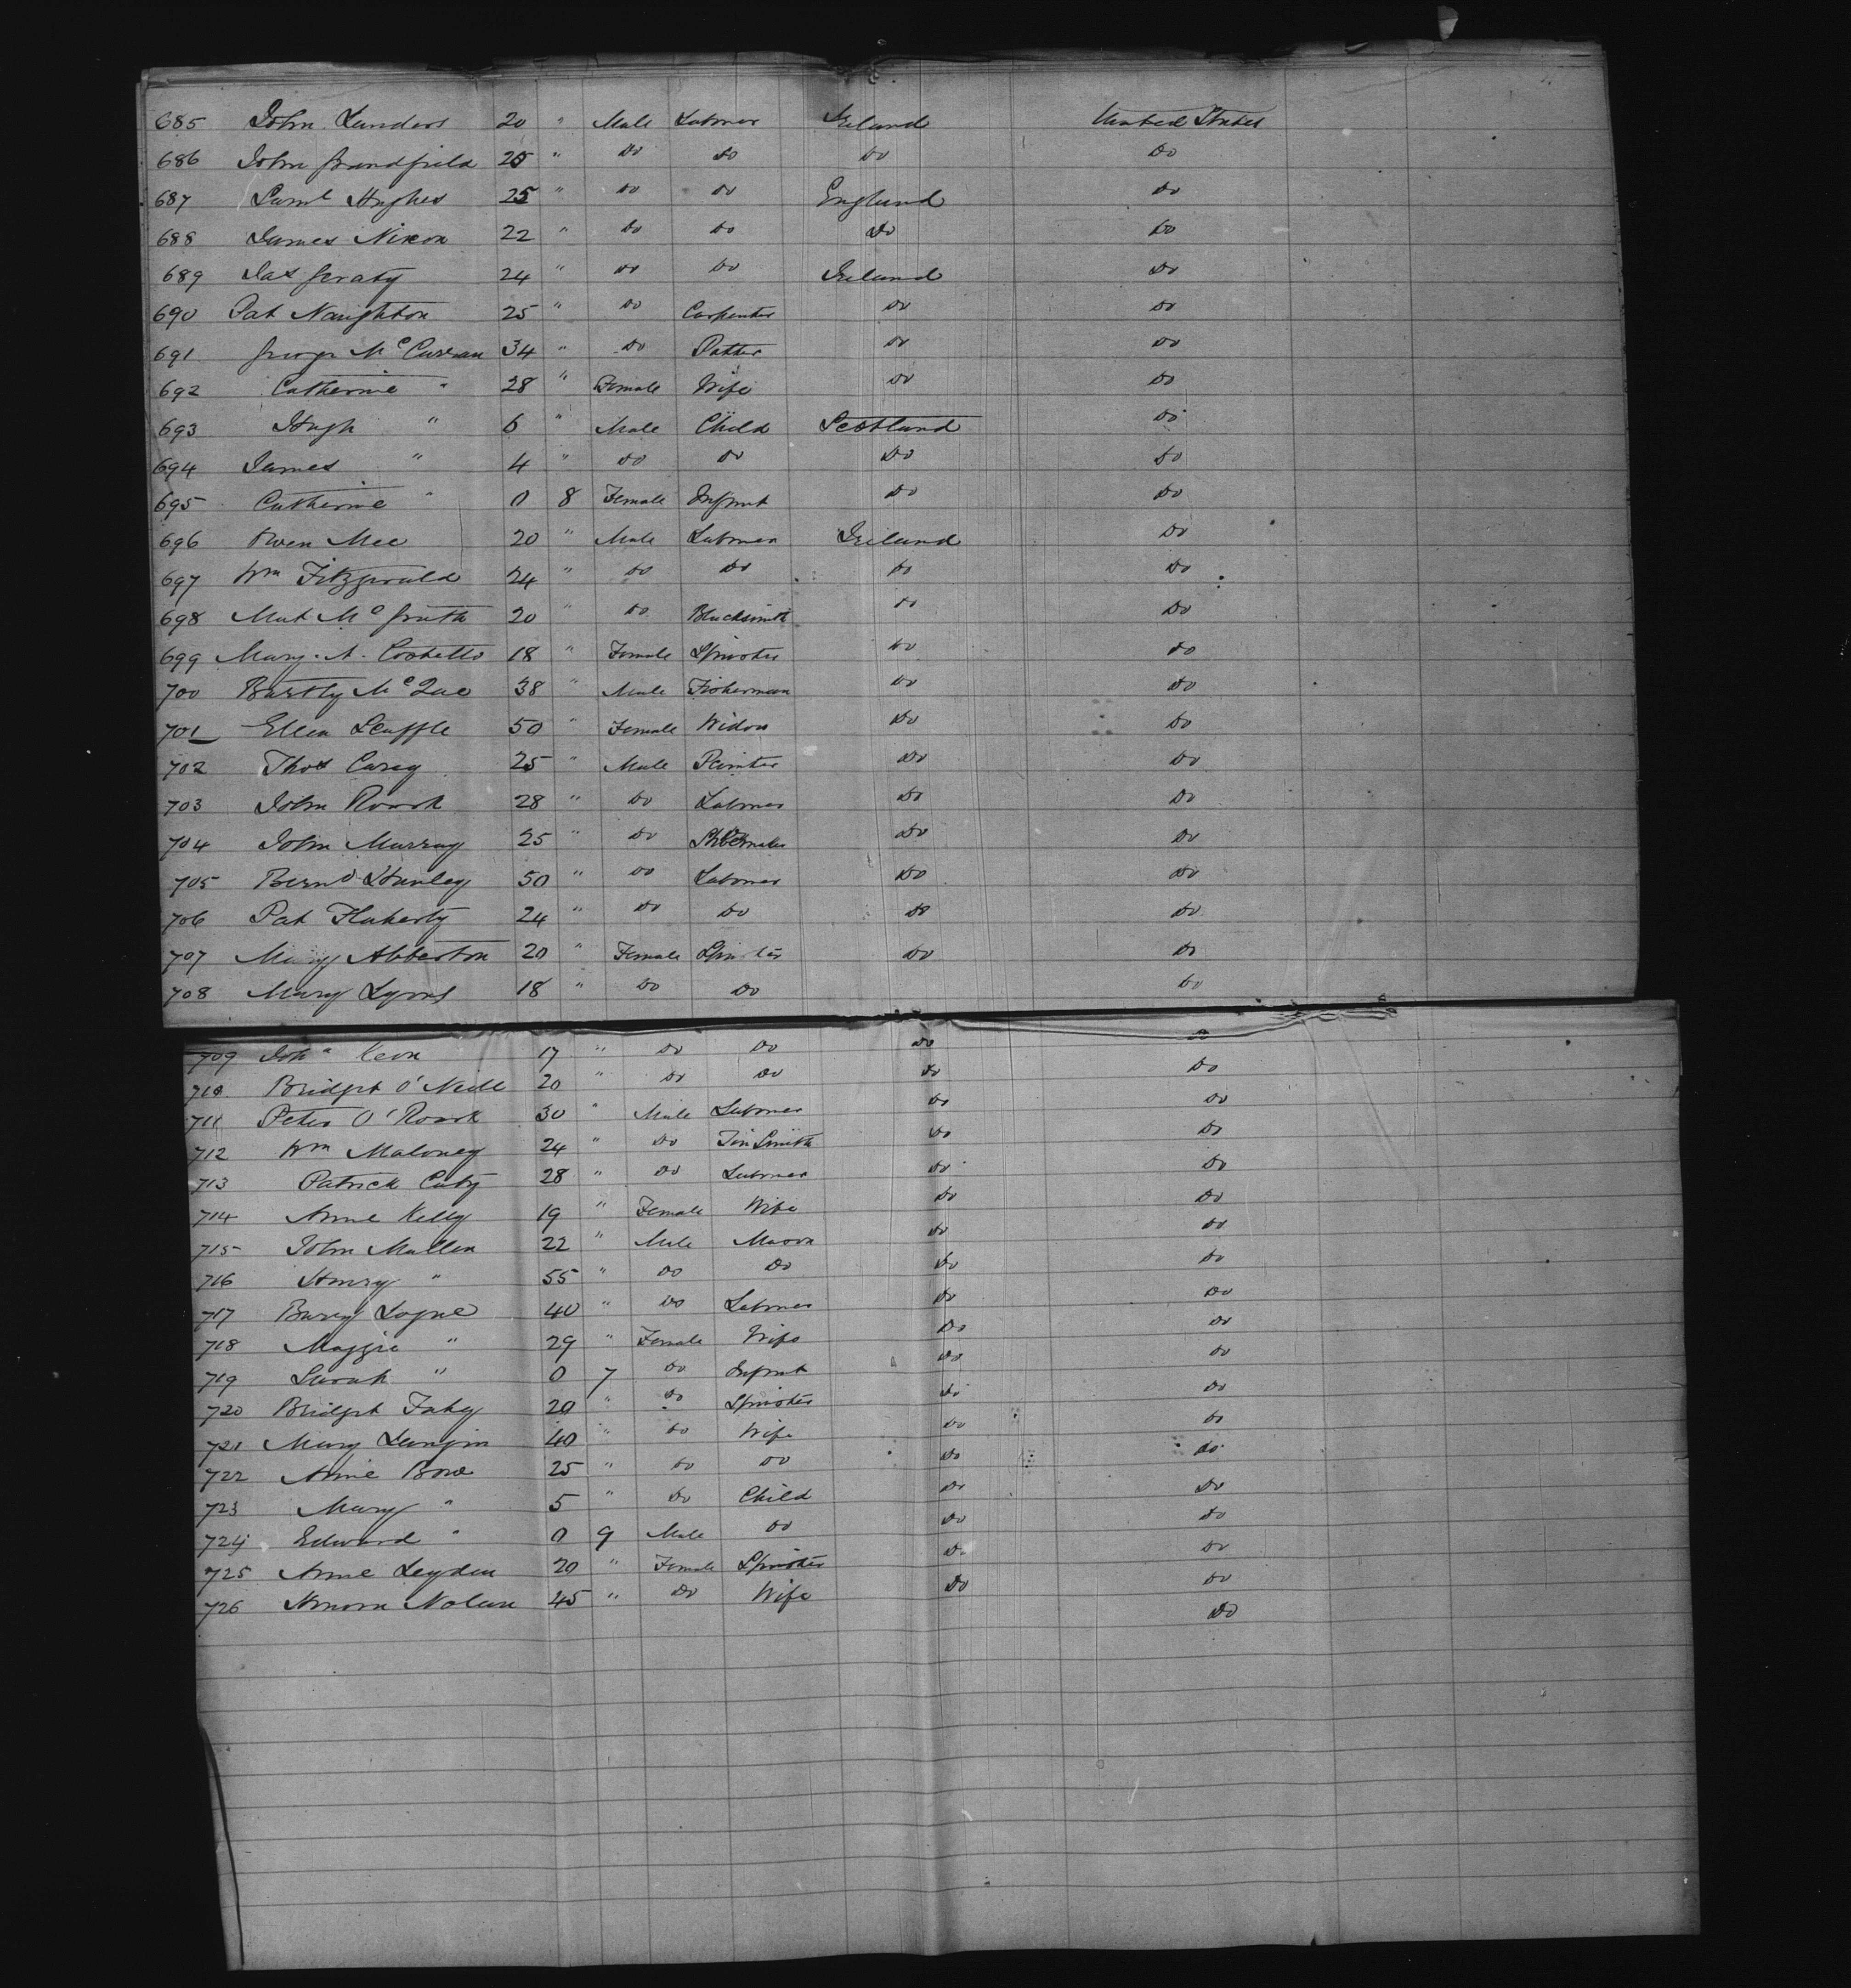 685 John Landers 20 " Male Labourer Ireland United States
686 John Grandfield 25 " Do Do Do Do
687 Saml Hughes 25 " Do Do England Do
688 James Nixon 22 " Do Do Do Do
689 Jas Geraty 24 " Do Do Ireland Do
690 Pat Naughton 25 " Do Carpenter Do Do
691 George McCurran 34 " Do Potter Do Do
692 Catherine " 28 " Female Wife Do Do
693 Hugh " 6 " Male Child Scotland Do
694 James " 4 " Do Do Do Do
695 Catherine " 0 8 Female Infant Do Do
696 Owen Mee 20 " Male Labourer Ireland Do
697 Wm Fitzgerald 24 " Do Do Do Do
698 Mat McGrath 20 " Do Blacksmith Do Do
699 Mary A. Costello 18 " Female Spinster Do Do
700 Bartly McQue 38 " Male Fisherman Do Do
701 Ellen Scuffle 50 " Female Widow Do Do
702 Thos Carey 25 " Male Painter Do Do
703 John Roark 28 " Do Labourer Do Do
704 John Murray 25 " Do Do Do
705 Bernd Hanley 50 " Do Labourer Do Do
706 Pat Flaherty 24 " Do Do Do Do
707 Mary Abberton 20 " Female Spinster Do Do
708 Mary Lyons 18 " Do Do Do
709 Joha Keon 17 " Do Do Do Do
710 Bridget O'Neill 20 " Do Do Do Do
711 Peter O'Roark 30 " Male Labourer Do Do
712 Wm Maloney 24 " Do Tin Smith Do Do
713 Patrick Caty 28 " Do Labourer Do Do
714 Anne Kelly 19 " Female Wife Do Do
715 John Mullen 22 " Male Mason Do Do
716 Henry " 55 " Do Do Do Do
717 Barey Logue 40 " Do Labourer Do Do
718 Maggie " 29 " Female Wife Do Do
719 Sarah " 0 7 Do Infant Do Do
720 Bridget Fahy 20 " Do Spinster Do Do
721 Mary Langin 40 " Do Wife Do Do
722 Anne Bow 25 " Do Do Do Do
723 Mary " 5 " Do Child Do Do
724 Edward " 0 9 Male Do Do Do
725 Anne Leyden 20 " Female Spinster Do Do
726 Honora Nolan 45 " Do Wife Do Do
Do